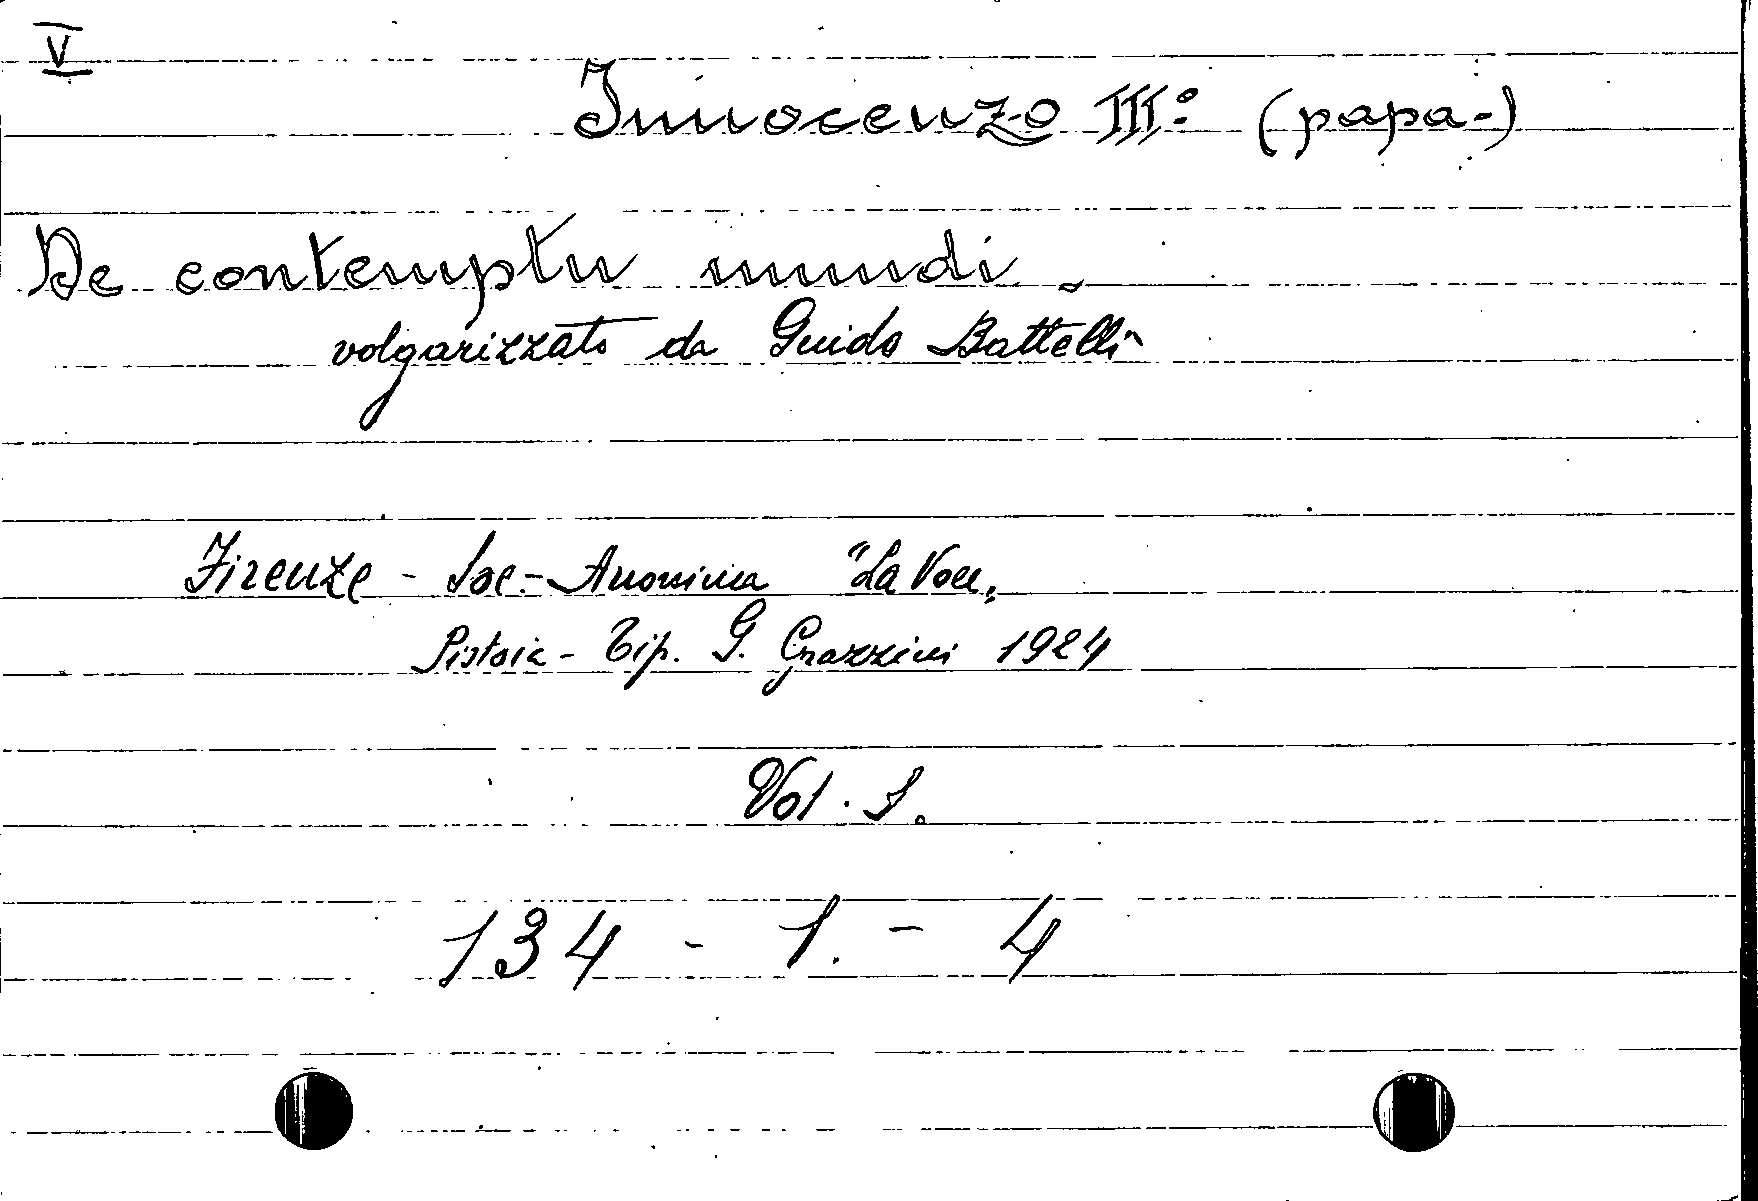 V
Innocenzo III° (papa-)
De contemptu mundi -
volgarizzato da Guido Battelli
Firenze - Soc.- Anonima "La Voce"
Pistoia - Tip. G. Grazzini 1924
Vol. I.
134 - 1. - 4